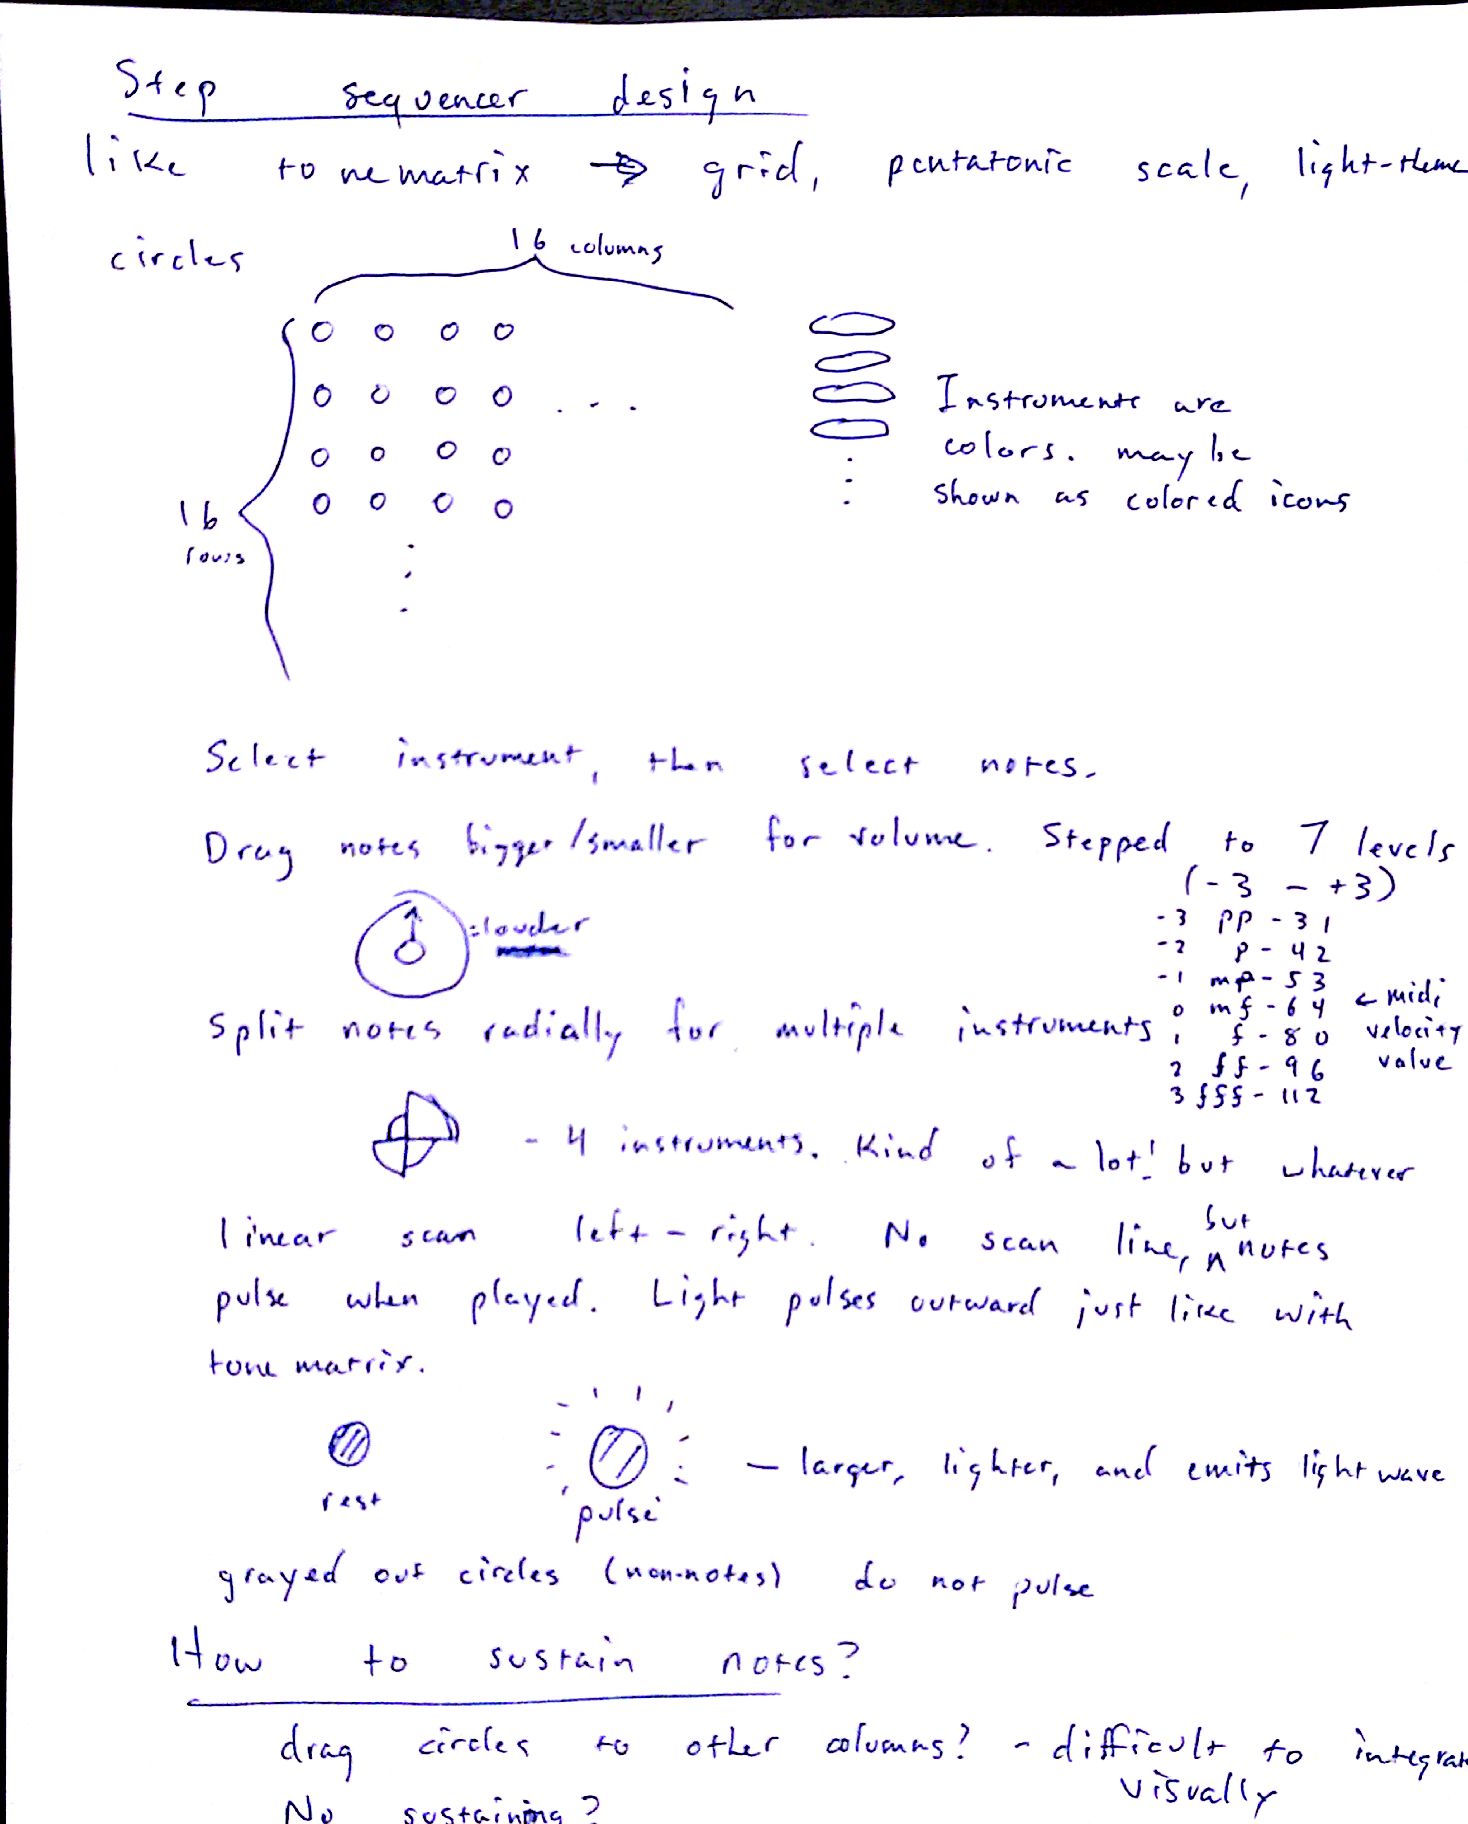 Step sequencer design
like tonematrix → grid, pentatonic scale, light-theme
circles
16 columns
16
rows
Instruments are
colors. may be
shown as colored icons
Select instrument, then select notes.
Drag notes bigger/smaller for volume. Stepped to 7 levels
(-3 - +3)
-3 pp - 31
-2 p - 42
-1 mp - 53
0 mf - 64
1 f - 80
2 ff - 96
3 fff - 112
← midi
velocity
value
= louder
Split notes radially for multiple instruments
- 4 instruments. Kind of a lot! but whatever
linear scan left - right. No scan line, but notes
pulse when played. Light pulses outward just like with
tone matrix.
rest
pulse
— larger, lighter, and emits light wave
grayed out circles (non-notes) do not pulse
How to sustain notes?
drag circles to other columns? - difficult to integrate
visually
No sustaining?